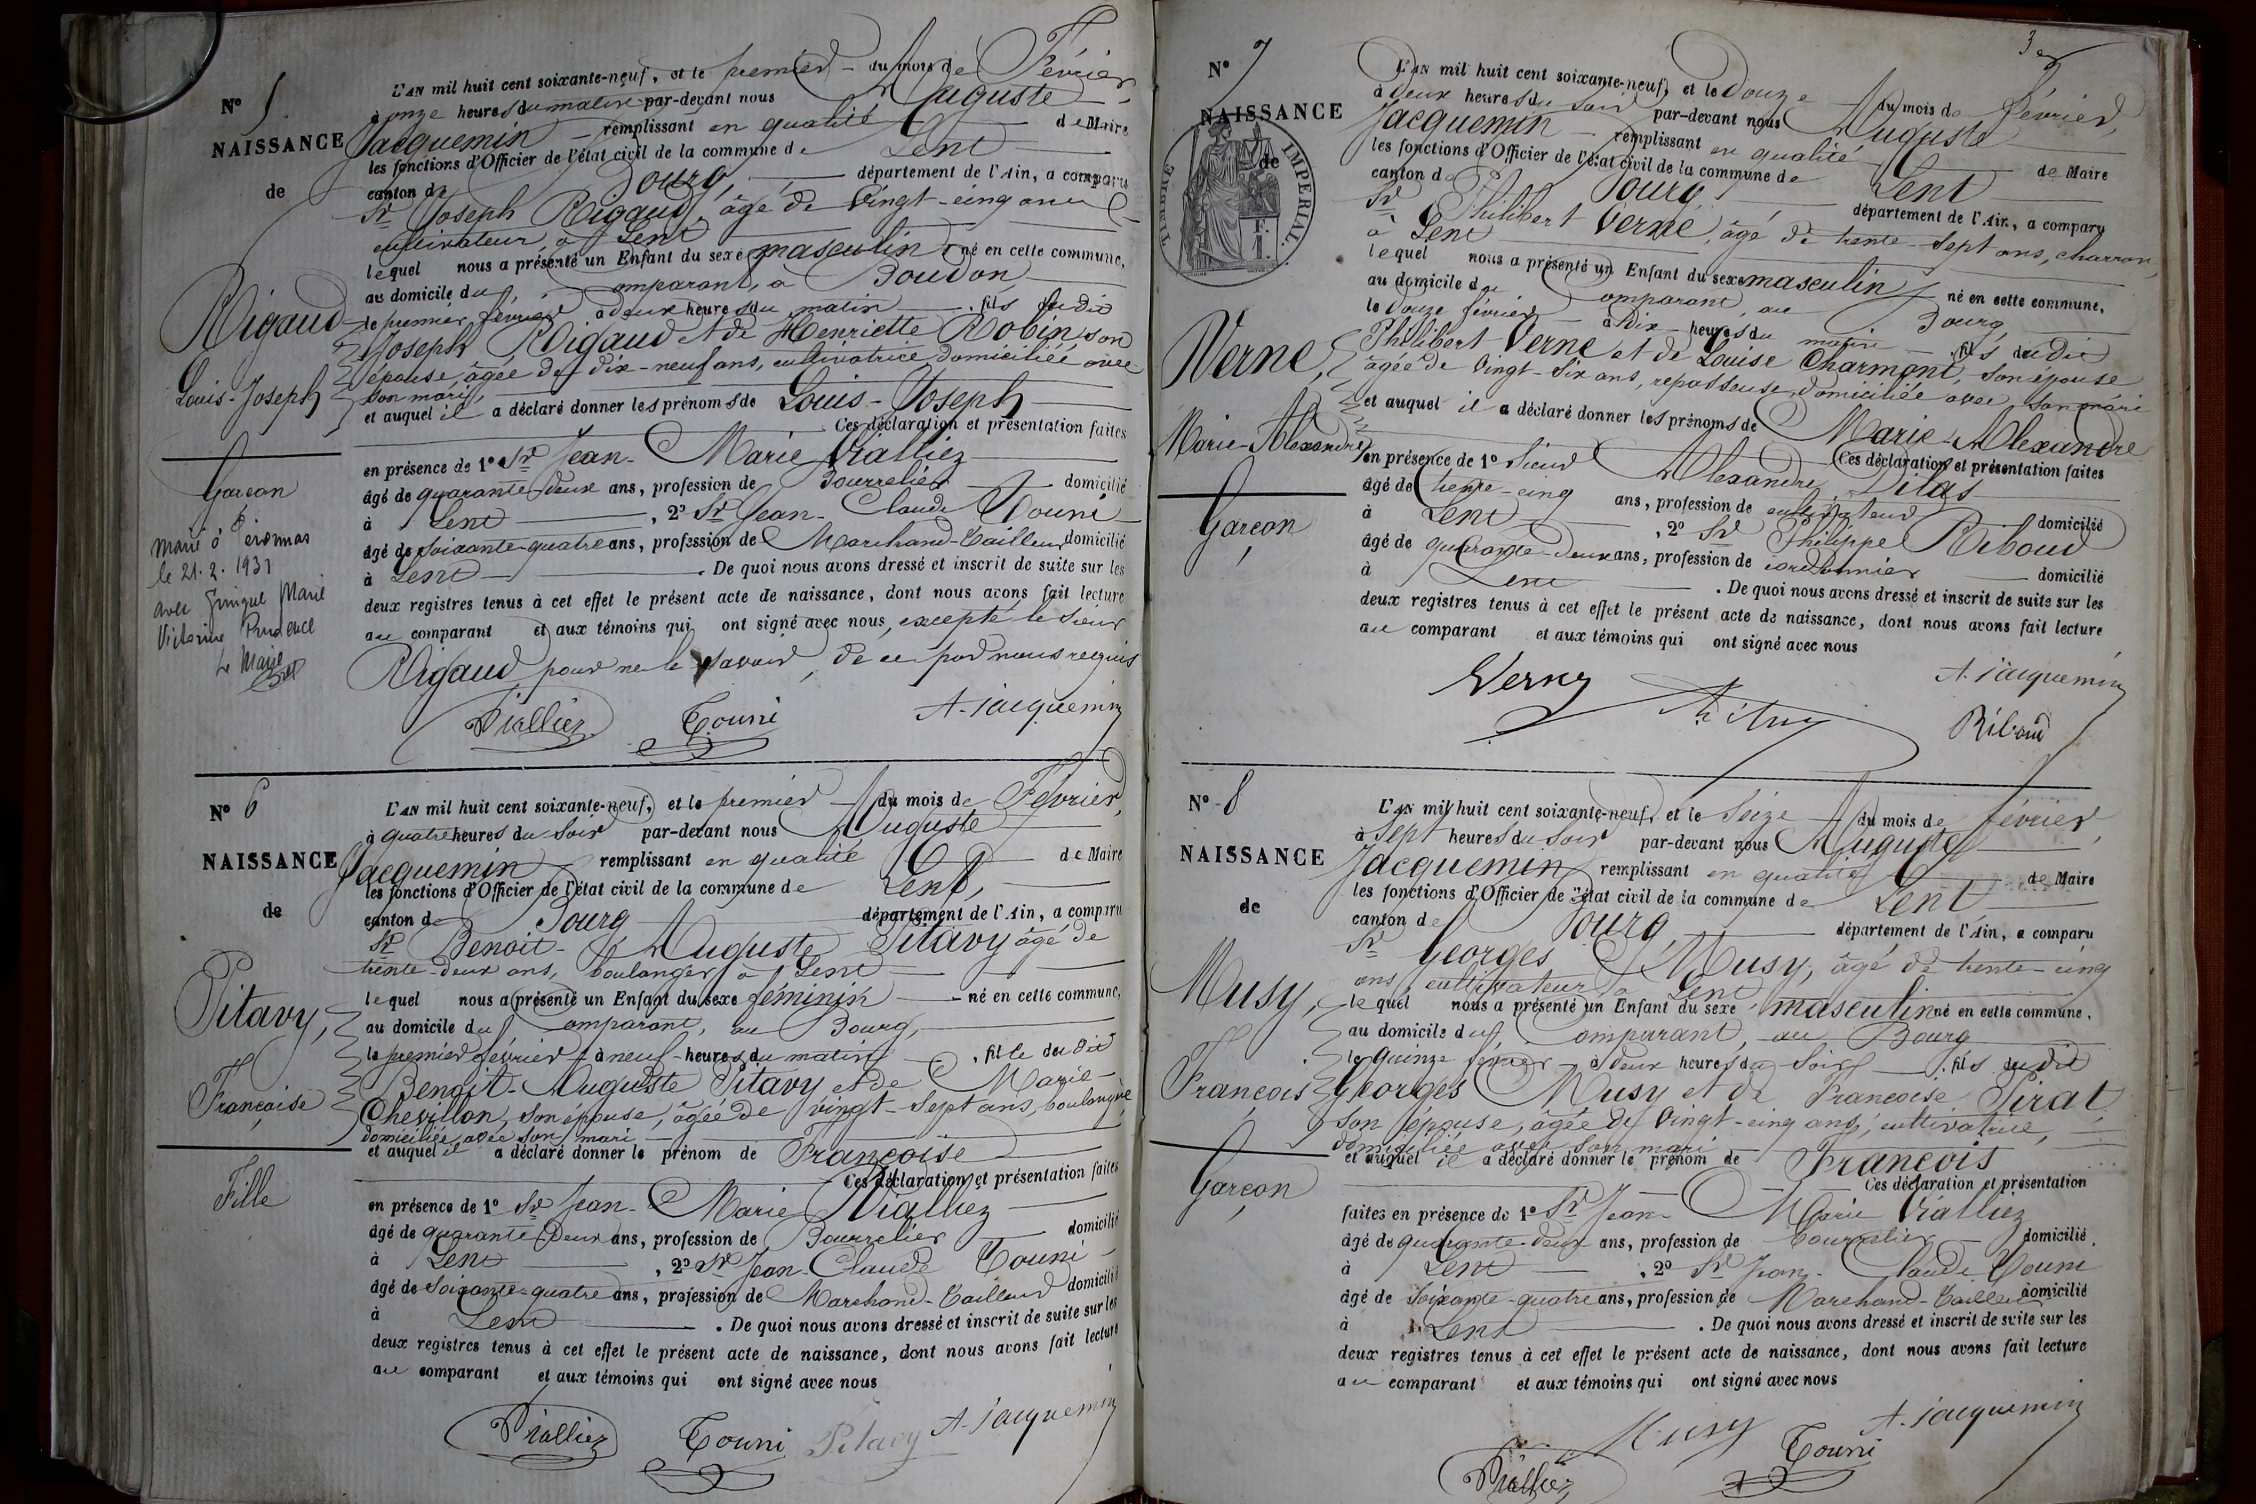 N° 5
NAISSANCE
de
Rigaud
Louis-Joseph
Garçon
Marié à Péronnas
le 21.2.1931
avec Marie
Victorine Prudence
Le Maire
L'AN mil huit cent soixante-neuf, et le premier du mois de Février
à onze heures du matin par-devant nous Auguste
Jacquemin remplissant en qualité de Maire
les fonctions d'Officier de l'état civil de la commune de Lent
canton de Bourg, département de l'Ain, a comparu
Sr Joseph Rigaud, âgé de vingt-cinq ans
cultivateur, à Lent
lequel nous a présenté un Enfant du sexe masculin né en cette commune,
au domicile du Comparant, à Boudon
le premier février à deux heures du matin, fils du dit
Joseph Rigaud et de Henriette Robin, son
épouse, âgée de dix-neuf ans, cultivatrice domiciliée avec
son mari,
et auquel il a déclaré donner les prénoms de Louis-Joseph
Ces déclaration et présentation faites
en présence de 1° Sr Jean-Marie Vialliez
âgé de quarante-deux ans, profession de Bourrelier domicilié
à Lent, 2° Sr Jean-Claude Touni
âgé de soixante-quatre ans, profession de Marchand-Tailleur domicilié
à Lent. De quoi nous avons dressé et inscrit de suite sur les
deux registres tenus à cet effet le présent acte de naissance, dont nous avons fait lecture
au comparant et aux témoins qui ont signé avec nous, excepté le sieur
Rigaud pour ne le savoir, de ce par nous requis
Vialliez Touni A. Jacquemin
N° 6
NAISSANCE
de
Pitavy,
Françoise
Fille
L'AN mil huit cent soixante-neuf, et le premier du mois de Février,
à quatre heures du soir par-devant nous Auguste
Jacquemin remplissant en qualité de Maire
les fonctions d'Officier de l'état civil de la commune de Lent,
canton de Bourg département de l'Ain, a comparu
Sr Benoit-Auguste Pitavy âgé de
trente-deux ans, boulanger à Lent
lequel nous a présenté un Enfant du sexe féminin né en cette commune,
au domicile du Comparant, au Bourg,
le premier février à neuf heures du matin, fille du dit
Benoit-Auguste Pitavy et de Marie
Chevillon, son épouse, âgée de vingt-sept ans, boulangère
domiciliée avec son mari
et auquel il a déclaré donner le prénom de Françoise
Ces déclaration et présentation faites
en présence de 1° Sr Jean-Marie Vialliez
âgé de quarante-deux ans, profession de Bourrelier domicilié
à Lent, 2° Sr Jean-Claude Touni
âgé de soixante-quatre ans, profession de Marchand-Tailleur domicilié
à Lent. De quoi nous avons dressé et inscrit de suite sur les
deux registres tenus à cet effet le présent acte de naissance, dont nous avons fait lecture
au comparant et aux témoins qui ont signé avec nous
Vialliez Touni Pitavy A. Jacquemin
3
N° 7
NAISSANCE
de
TIMBRE IMPERIAL.
F.
1.
Verne,
Marie-Alexandre
Garçon
L'AN mil huit cent soixante-neuf, et le Douze du mois de février,
à deux heures du soir par-devant nous Auguste
Jacquemin remplissant en qualité de Maire
les fonctions d'Officier de l'état civil de la commune de Lent
canton de Bourg, département de l'Ain, a comparu
Sr Philibert Verne, âgé de trente-sept ans, charron,
à Lent
lequel nous a présenté un Enfant du sexe masculin né en cette commune.
au domicile du Comparant, au Bourg,
le Douze février à dix heures du matin, fils du dit
Philibert Verne et de Louise Charmont, son épouse
âgée de vingt-six ans, repasseuse, domiciliée avec son mari
et auquel il a déclaré donner les prénoms de Marie-Alexandre
Ces déclaration et présentation faites
en présence de 1° Sieur Alexandre
âgé de trente-cinq ans, profession de cultivateur domicilié
à Lent, 2° Sr Philippe Riboud
âgé de quarante-deux ans, profession de cordonnier domicilié
à Lent. De quoi nous avons dressé et inscrit de suite sur les
deux registres tenus à cet effet le présent acte de naissance, dont nous avons fait lecture
au comparant et aux témoins qui ont signé avec nous
Verne A. Jacquemin
Riboud
N° 8
NAISSANCE
de
Musy,
François
Garçon
L'AN mil huit cent soixante-neuf, et le Seize du mois de février,
à sept heures du soir par-devant nous Auguste
Jacquemin remplissant en qualité de Maire
les fonctions d'Officier de l'état civil de la commune de Lent
canton de Bourg, département de l'Ain, a comparu
Sr Georges Musy, âgé de trente-cinq
ans, cultivateur à Lent
lequel nous a présenté un Enfant du sexe masculin né en cette commune.
au domicile du Comparant, au Bourg
le quinze février à deux heures du soir, fils du dit
Georges Musy et de Françoise Pirat,
son épouse, âgée de vingt-cinq ans, cultivatrice,
domiciliée avec son mari
et auquel il a déclaré donner le prénom de François
Ces déclaration et présentation
faites en présence de 1° Sr Jean-Marie Vialliez
âgé de quarante-deux ans, profession de bourrelier domicilié
à Lent, 2° Sr Jean-Claude Touni
âgé de soixante-quatre ans, profession de Marchand-Tailleur domicilié
à Lent. De quoi nous avons dressé et inscrit de suite sur les
deux registres tenus à cet effet le présent acte de naissance, dont nous avons fait lecture
au comparant et aux témoins qui ont signé avec nous
Musy A. Jacquemin
Vialliez Touni